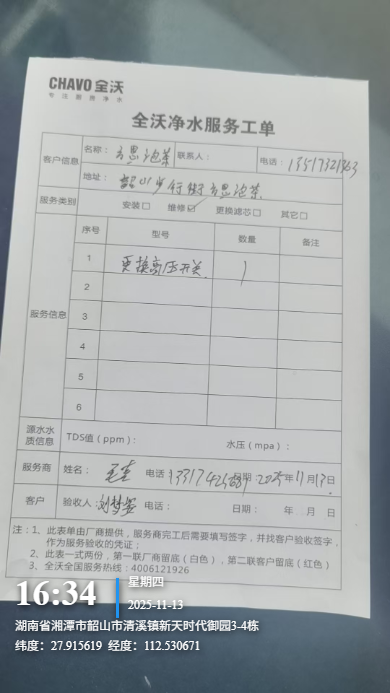 CHAVO 全沃
专注厨房净水
全沃净水服务工单
客户信息 名称： 联系人： 电话：13517321363
地址：韶山步行街
服务类别 安装□ 维修☑ 更换滤芯□ 其它□
服务信息 序号 型号 数量 备注
1 更换高压开关 1
2
3
4
5
6
源水水质信息 TDS值（ppm）： 水压（mpa）：
服务商 姓名： 电话 日期：2025年11月13日
客户 验收人： 电话： 日期： 年 月 日
注：1、此表单由厂商提供，服务商完工后需要填写签字，并找客户验收签字，
作为服务验收的凭证；
2、此表一式两份，第一联厂商留底（白色），第二联客户留底（红色）
3、全沃全国服务热线：4006121926
16:34 星期四
2025-11-13
湖南省湘潭市韶山市清溪镇新天时代御园3-4栋
纬度：27.915619 经度：112.530671